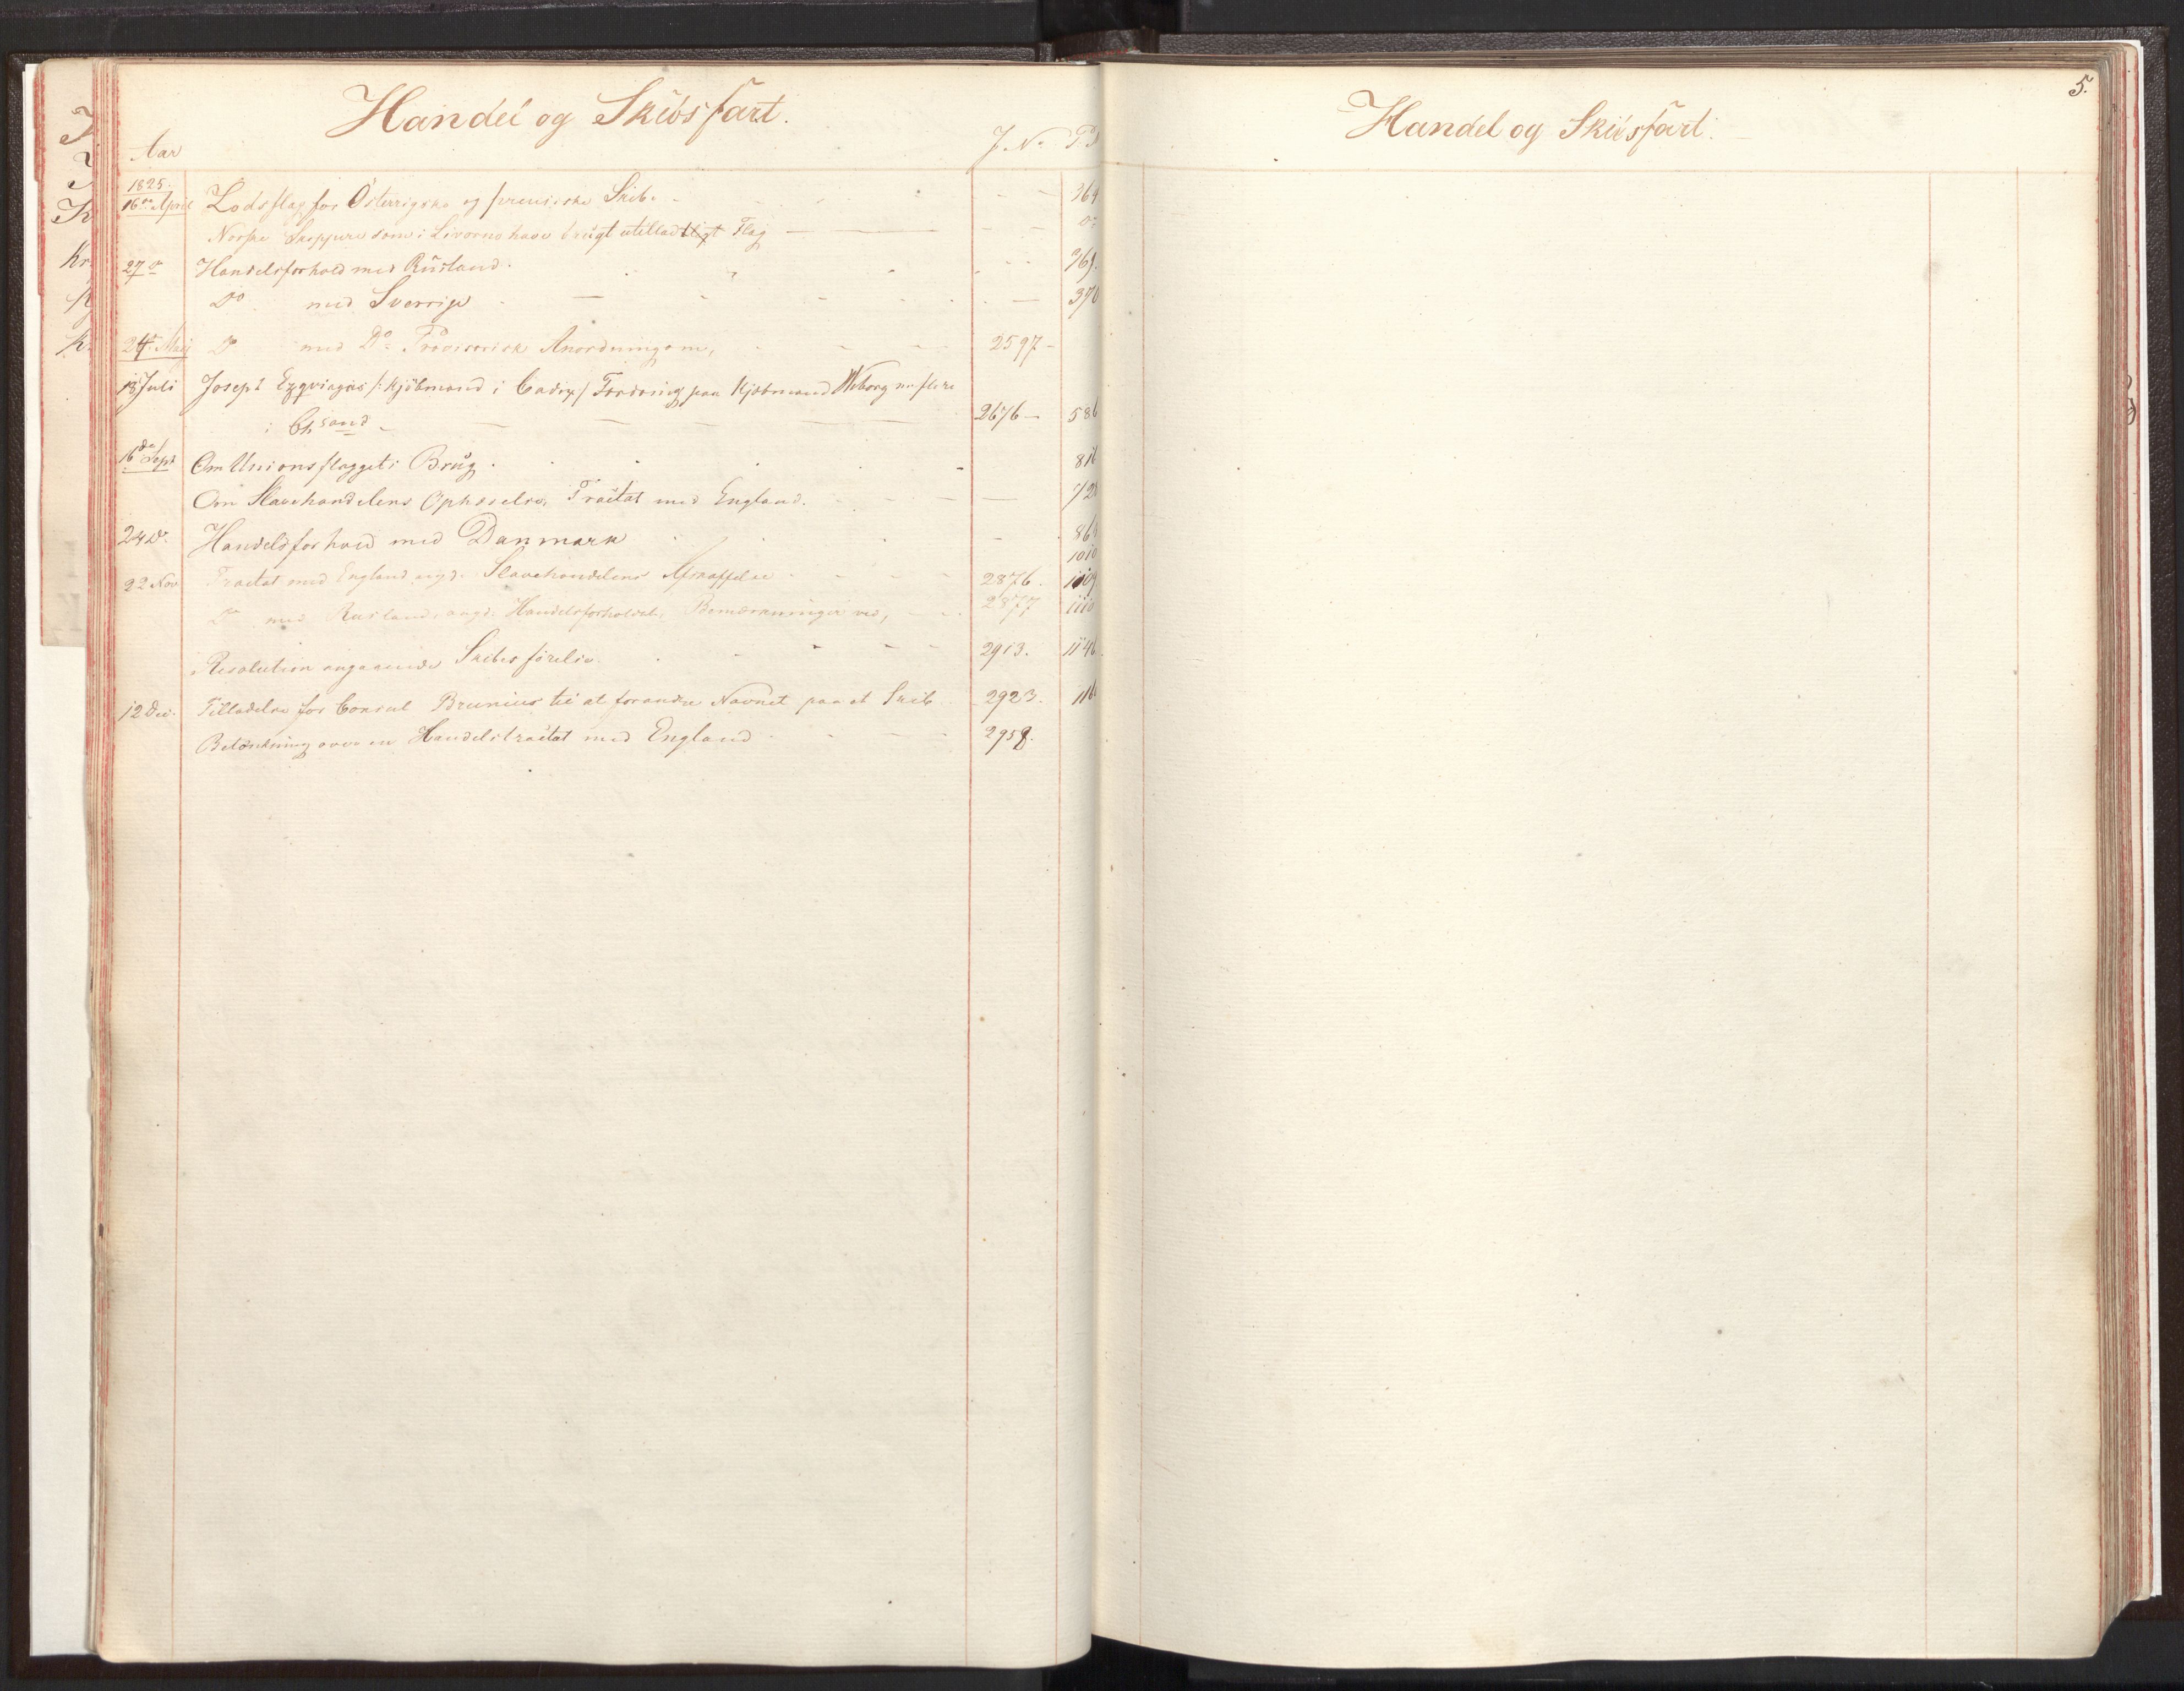 Handel og Skibsfart.
Aar J. No.
1825.
16de April Lodsflag for Østerrigske og preusiske Skibe 364
Norske Skippere som i Livorno have brugt utilladeligt Flag do
27 do Handelsforhold med Rusland. 369.
Do med Sverrige 370
24de Maj Do med Do Provisorisk Anordning om, 2597
18 Juli Joseph /: Kjöbmand i Cadix / Fordring paa Kjöbmand Wiborg m flere
i Chsand 2676 586
16de Sept Om Unionsflaggets Brug. 816
Om Slavehandelens Ophævelse, Tractat med England. 728
24 Do. Handelsforhold med Danmark
1010
22 Nov Tractat med England angd. Slavehandelens Afskaffelse 2876. 1109
Do med Rusland angd. Handelsforholdet, Bemærkninger ved, 2877 1110
Resolution angaaende Skibes förelse. 2913. 1146.
12 Dec. Tilladelse for Consul Brunius til at forandre Navnet paa et Skib 2923.
Betænkning over en Handelstractat med England 2958.
Handel og Skibsfart.
5.